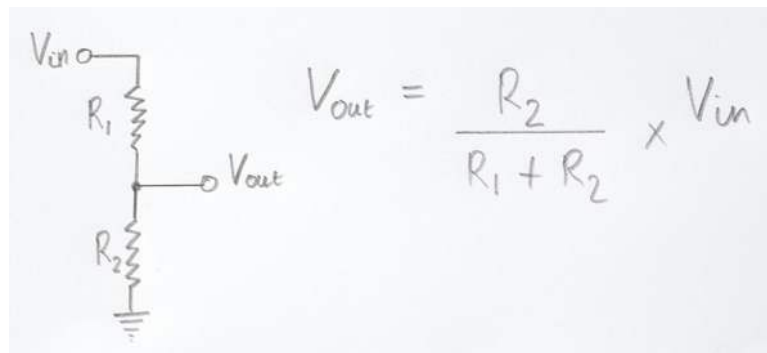 Vin
R₁
Vout
R₂
Vout = R₂ / R₁ + R₂ × Vin